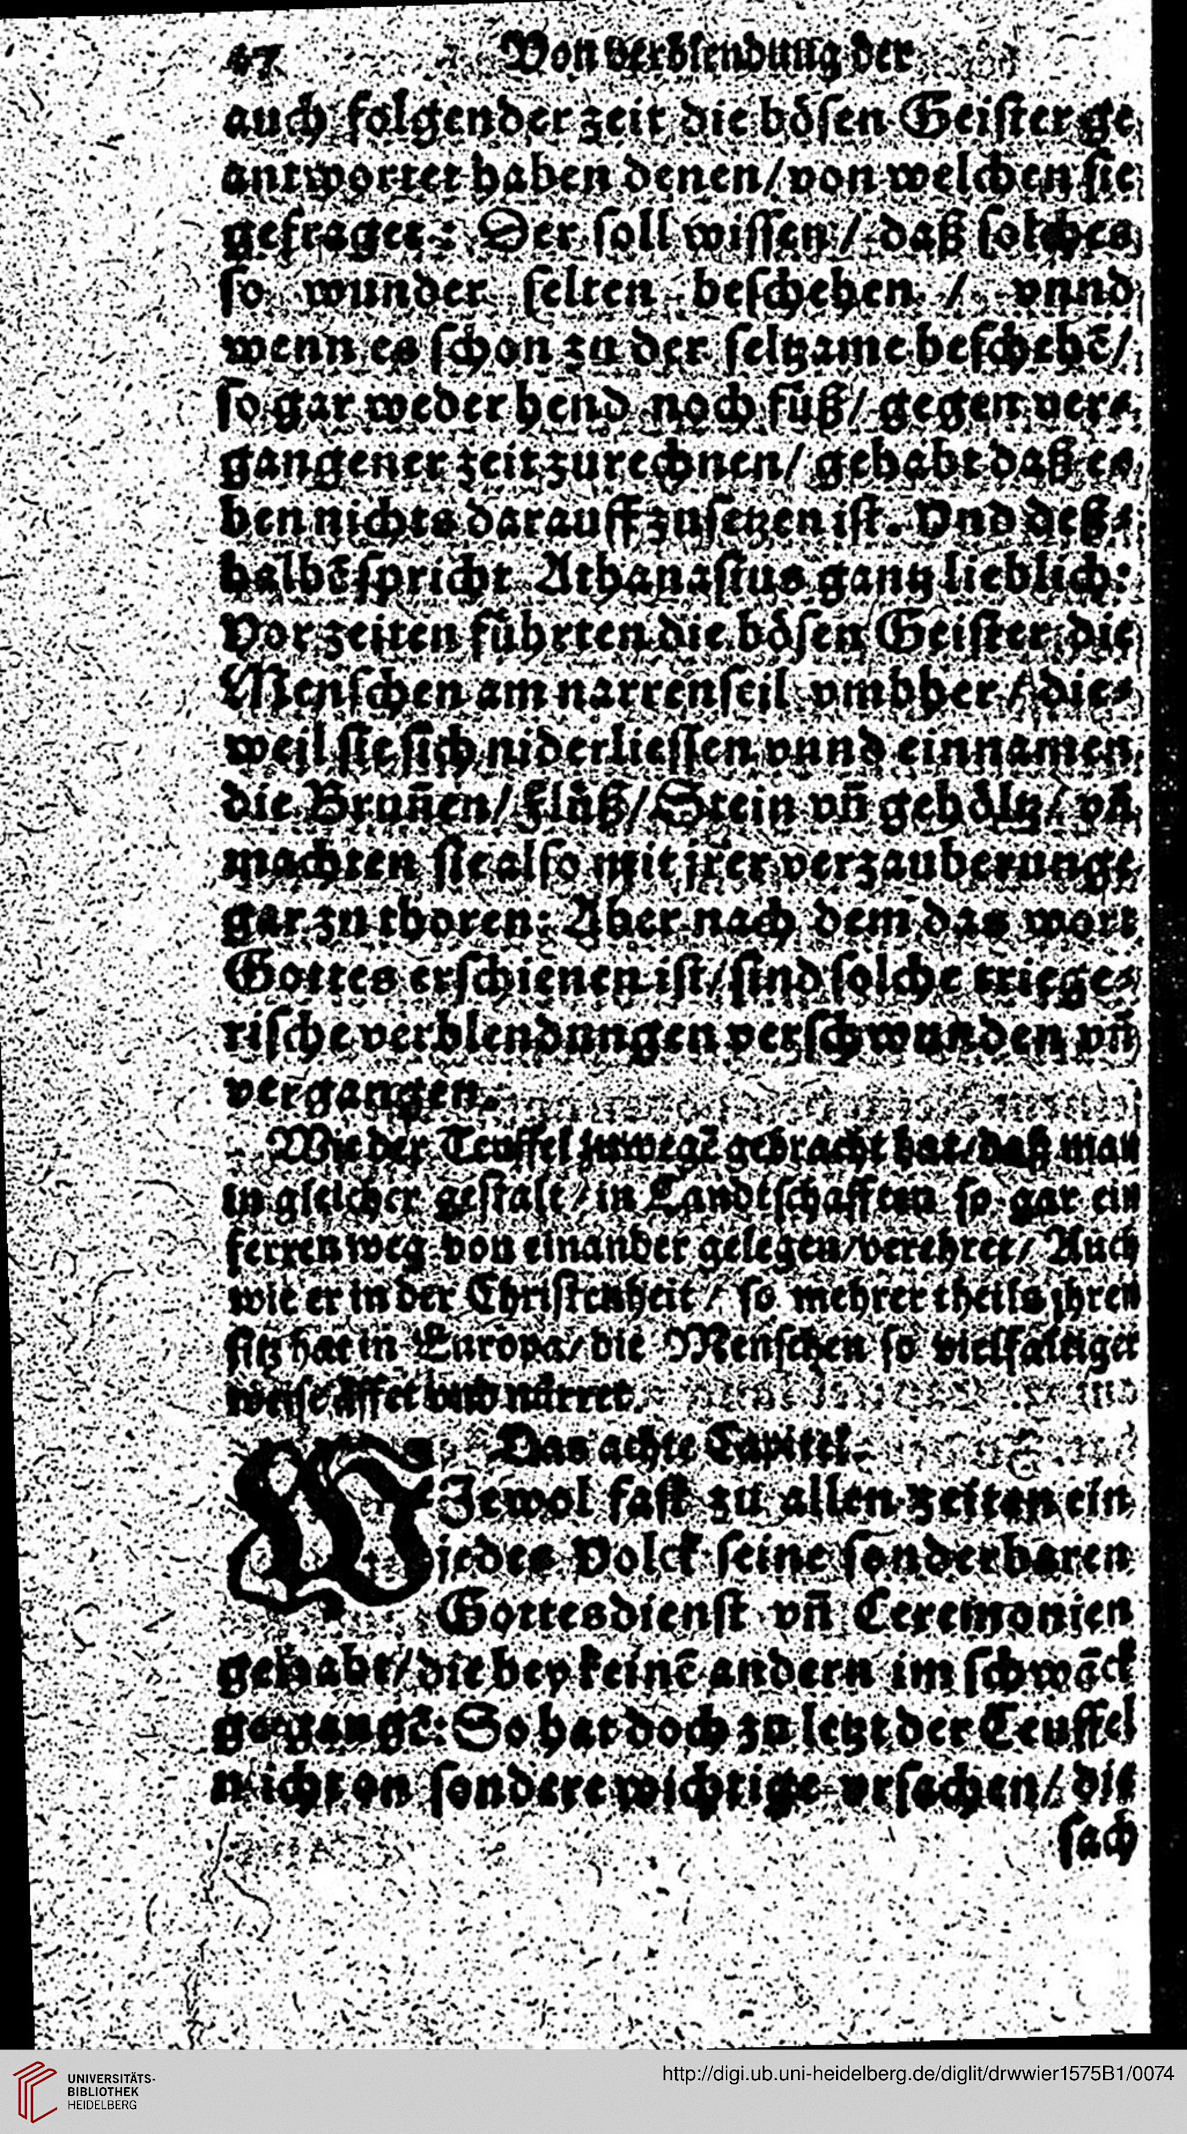 47 Von verblendung der
auch folgender zeit die bösen Geister ge
antwortet haben denen/ von welchen sie
gefraget: Der soll wissen/ daß solches
so wunder selten beschehen / vnnd
wenn es schon zu der seltzame beschehē/
so gar weder hend noch füß/ gegen ver⸗
gangener zeit zurechnen/ gehabt daß es
ben nichts darauff zusetzen ist. Vnd deß⸗
halbē spricht Athanasius gantz lieblich:
Vor zeiten führten die bösen Geister die
Menschen am narrenseil vmbher / die⸗
weil sie sich niderliessen vnnd einnamen
die Brunnen/ Flüß/ Stein vn̄ gehöltz/ vn̄
machten sie also mit jrer verzauberunge
gar zu thoren: Aber nach dem das wort
Gottes erschienen ist/ sind solche triege⸗
rische verblendungen verschwunden vn̄
vergangen.
Wie der Teuffel zuwegē gebracht hat/ daß man
in gleicher gestalt/ in Landtschafften so gar ein
ferren weg von einander gelegen/ verehret/ Auch
wie er in der Christenheit / so mehrer theils jhren
sitz hat in Europa/ die Menschen so vielfaltiger
weise äffet vnd närret.
Das achte Capittel.
WJewol fast zu allen zeiten ein
jedes Volck seine sonderbaren
Gottesdienst vn̄ Ceremonien
gehabt/ die bey keinē andern im schwāck
gegangē: So hat doch zu letzt der Teuffel
nicht on sondere wichtige vrsachen/ die
sach
UNIVERSITÄTS-
BIBLIOTHEK
HEIDELBERG
http://digi.ub.uni-heidelberg.de/diglit/drwwier1575B1/0074